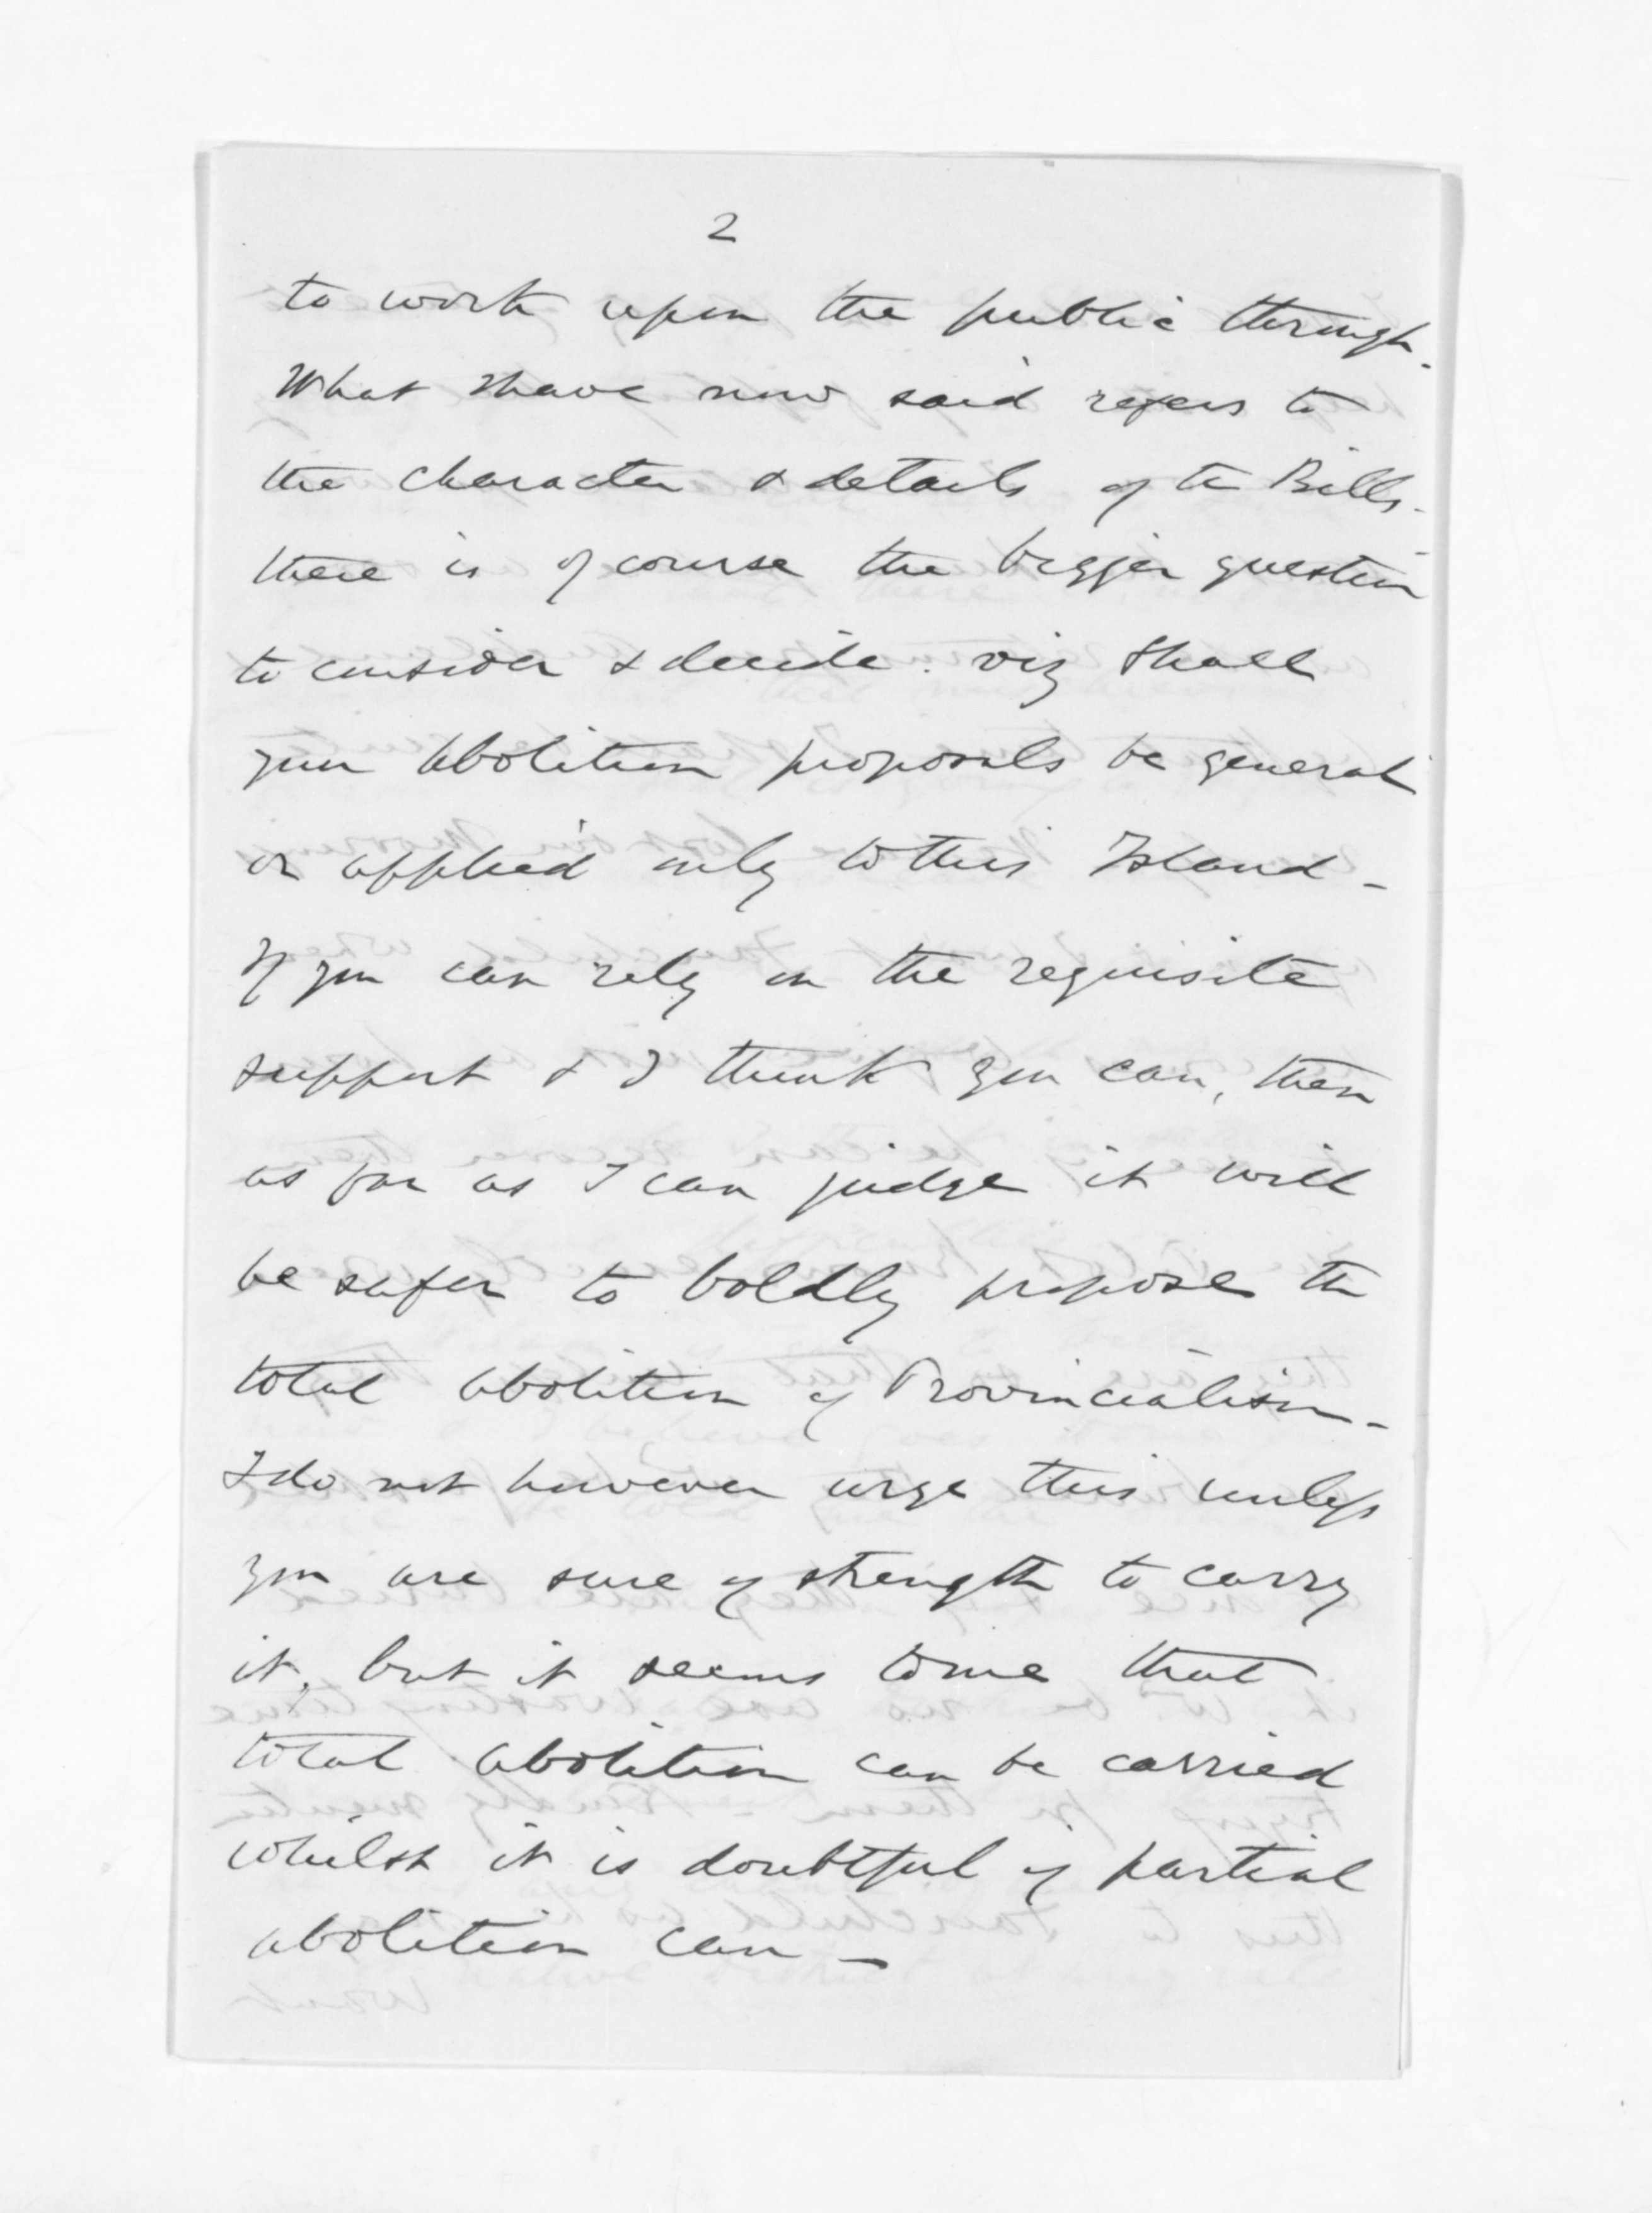 2
to work upon the public through.
What I have now said refers to
the character & details of the Bills.
there is of course the bigger question
to consider & decide. viz shall
your abolition proposals be general
or applied only to this Island -
If you can rely on the requisite
support & I think you can, then
as far as I can judge it will
be safer to boldly propose the
total abolition of Provincialism -
I do not however urge this unless
you are sure of strength to carry
it, but it seems to me that
total abolition can be carried
whilst it is doubtful if partial
abolition can -